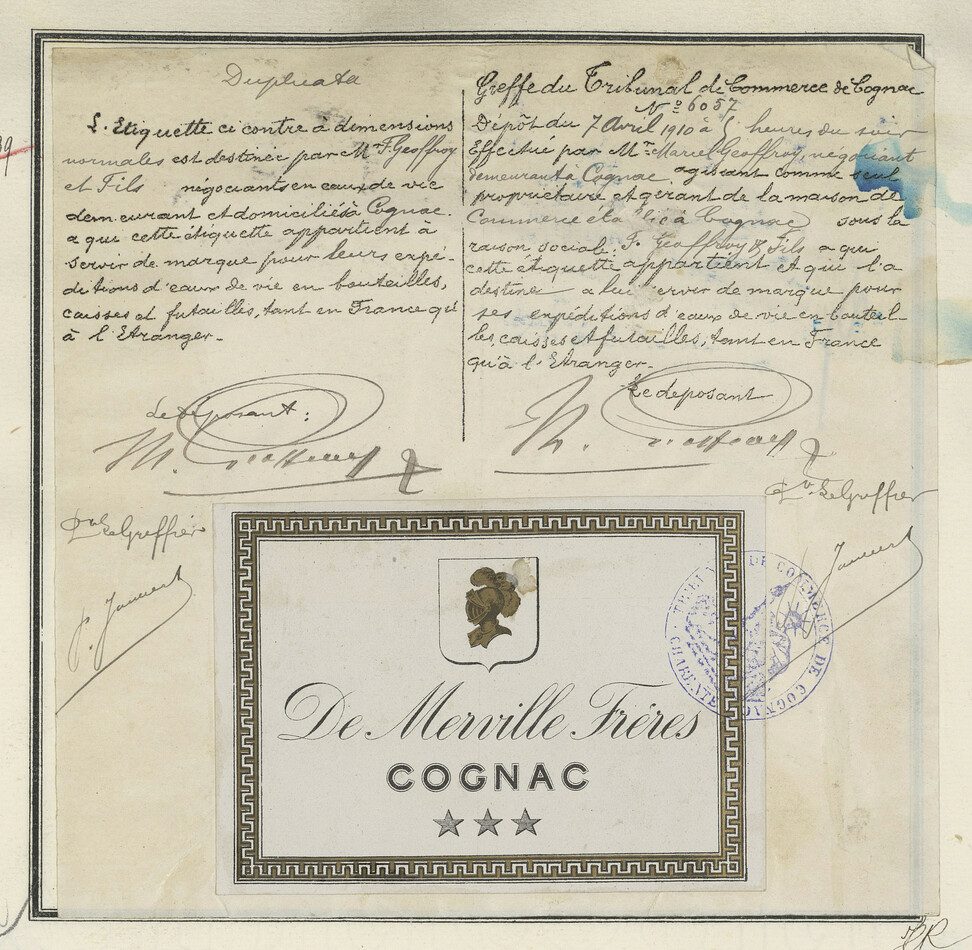 Duplicata
L'Etiquette ci contre à dimensions
normales est destinée par Mr F. Geoffroy
et Fils négociants en eaux de vie
demeurant et domiciliés à Cognac.
a qui cette étiquette appartient à
servir de marque pour leurs expé-
ditions d'eaux de vie en bouteilles,
caisses et futailles, tant en France qu'
à l'Etranger.
Le deposant:
Le Greffier
Greffe du Tribunal de Commerce de Cognac
No 6057
Dépôt du 7 Avril 1910 à 5 heures du soir
Effectué par Mr Marcel Geoffroy, négociant
demeurant à Cognac. agissant comme seul
propriétaire et gérant de la maison de
Commerce établie à Cognac sous la
raison sociale: F. Geoffroy & Fils a qui
cette étiquette appartient et qui l'a
destine a lui servir de marque pour
ses expéditions d'eaux de vie en bouteil-
les, caisses et futailles, tant en France
qu'à l'Etranger.
Le deposant
Le Greffier
De Merville Frères
COGNAC
TRIBUNAL DE COMMERCE DE COGNAC
CHARENTE
39